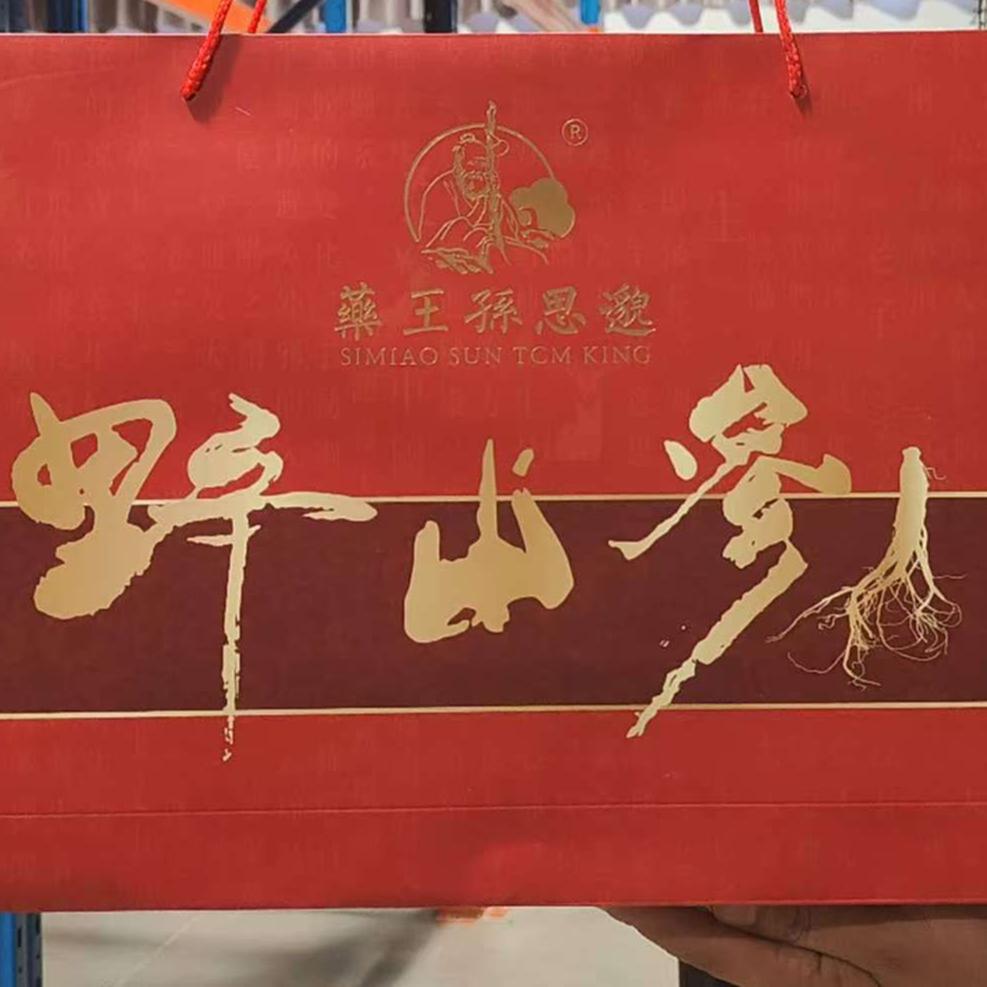 ®
藥王孫思邈
SIMIAO SUN TCM KING
野山參